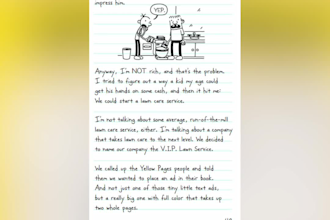 impress him.
YEP.
Anyway, I'm NOT rich, and that's the problem.
I tried to figure out a way a kid my age could
get his hands on some cash, and then it hit me:
We could start a lawn care service.
I'm not talking about some average, run-of-the-mill
lawn care service, either. I'm talking about a company
that takes lawn care to the next level. We decided
to name our company the V.I.P. Lawn Service.
We called up the Yellow Pages people and told
them we wanted to place an ad in their book.
And not just one of those tiny little text ads,
but a really big one with full color that takes up
two whole pages.